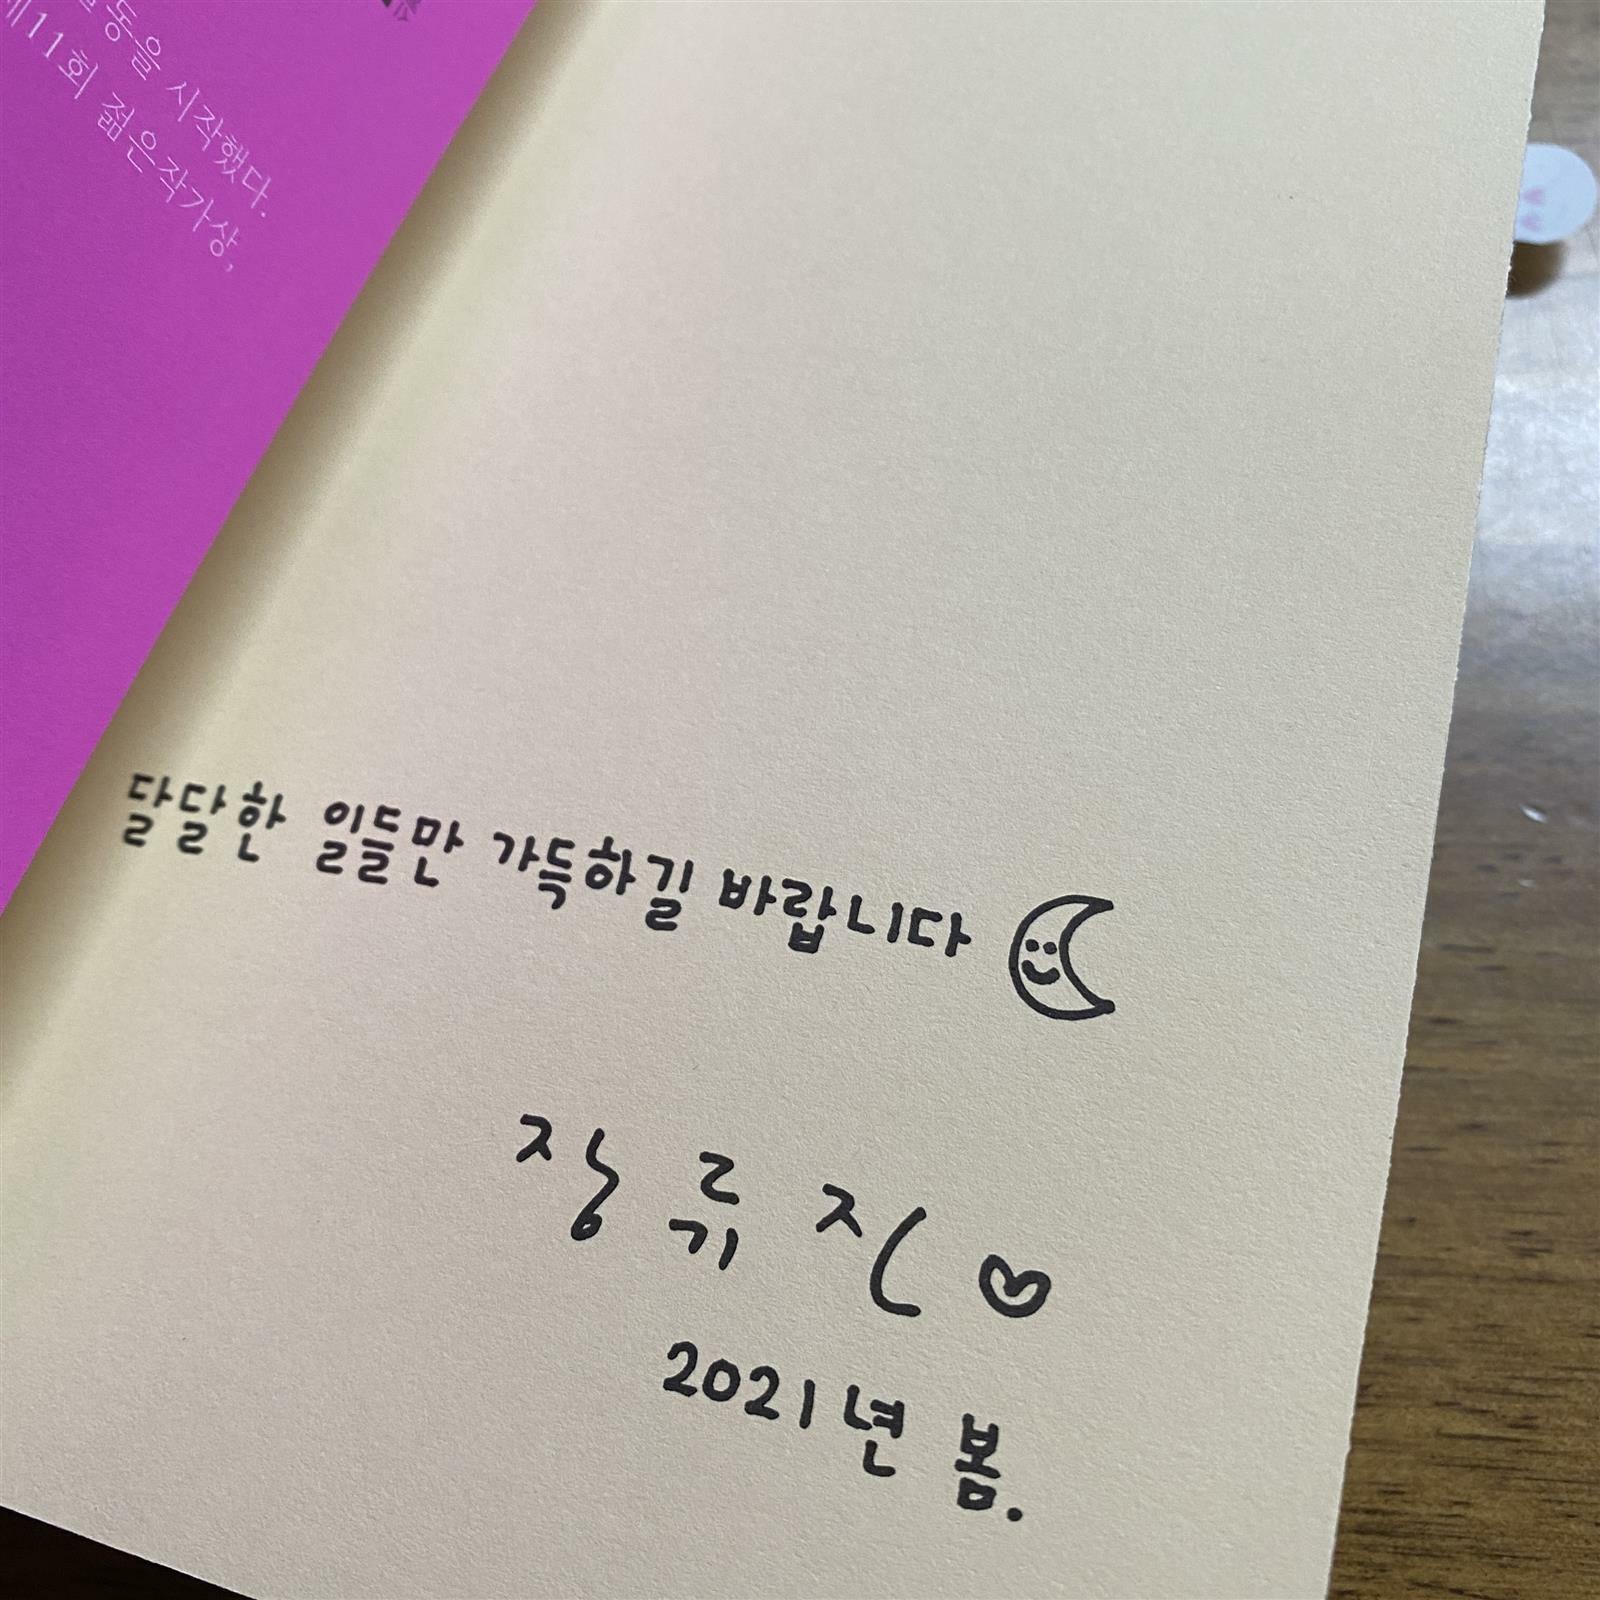 동을 시작했다.
제11회 젊은작가상,
달달한 일들만 가득하길 바랍니다
장류진
2021년 봄.